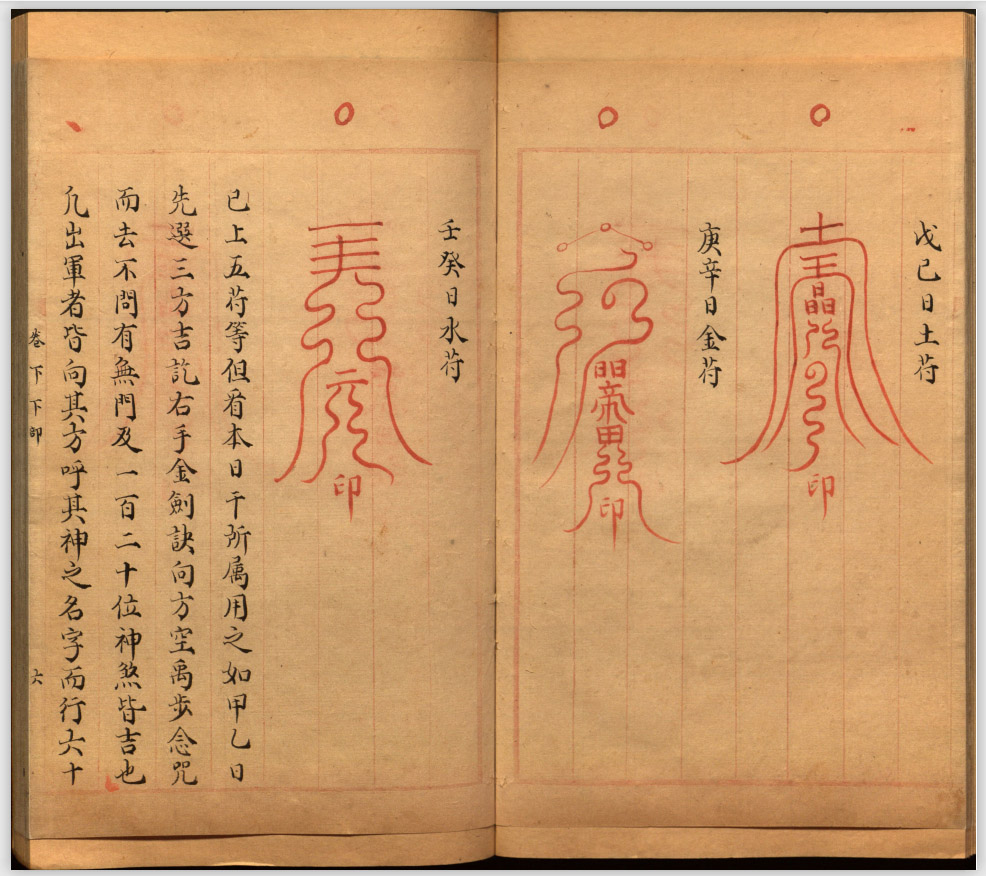 戊己日土苻
印
庚辛日金苻
印
壬癸日水苻
印
已上五苻等但看本日干所属用之如甲乙日
先選三方吉訖右手金劍訣向方空禹步念咒
而去不問有無門及一百二十位神煞皆吉也
凢出軍者皆向其方呼其神之名字而行六十
卷下下
六